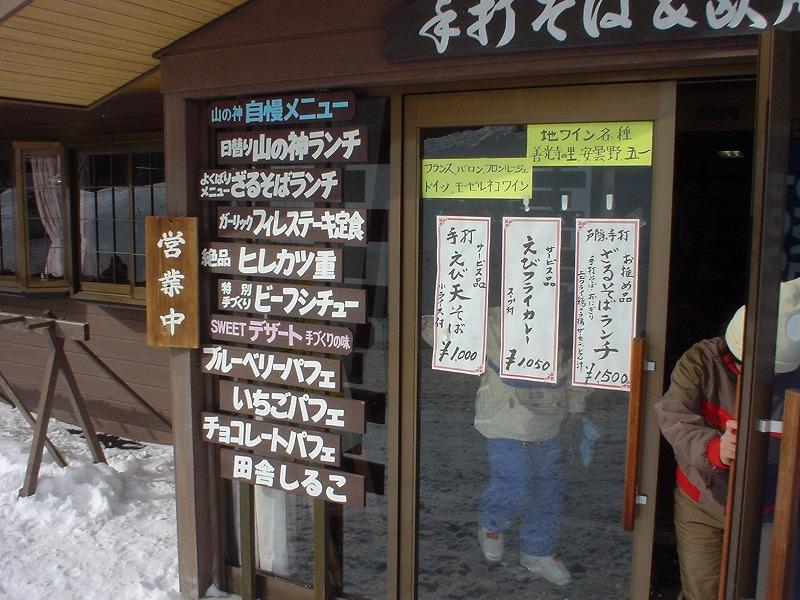 手打そば&
山の神 自慢メニュー
日替り山の神ランチ
よくばりメニュー ざるそばランチ
ガーリック フィレステーキ定食
絶品 ヒレカツ重
特別手づくり ビーフシチュー
SWEET デザート 手づくりの味
ブルーベリーパフェ
いちごパフェ
チョコレートパフェ
田舎しるこ
営業中
地ワイン各種
善光寺の里、安曇野、五一
フランス、バロン、フロンルージュ
ドイツ、モーゼルネコワイン
サービス品
手打えび天そば
小ライス付
¥1,000
サービス品
えびフライカレー
スープ付
¥1050
お進め品
戸隠、手打ざるそばランチ
手打そば、おにぎり
¥1,500